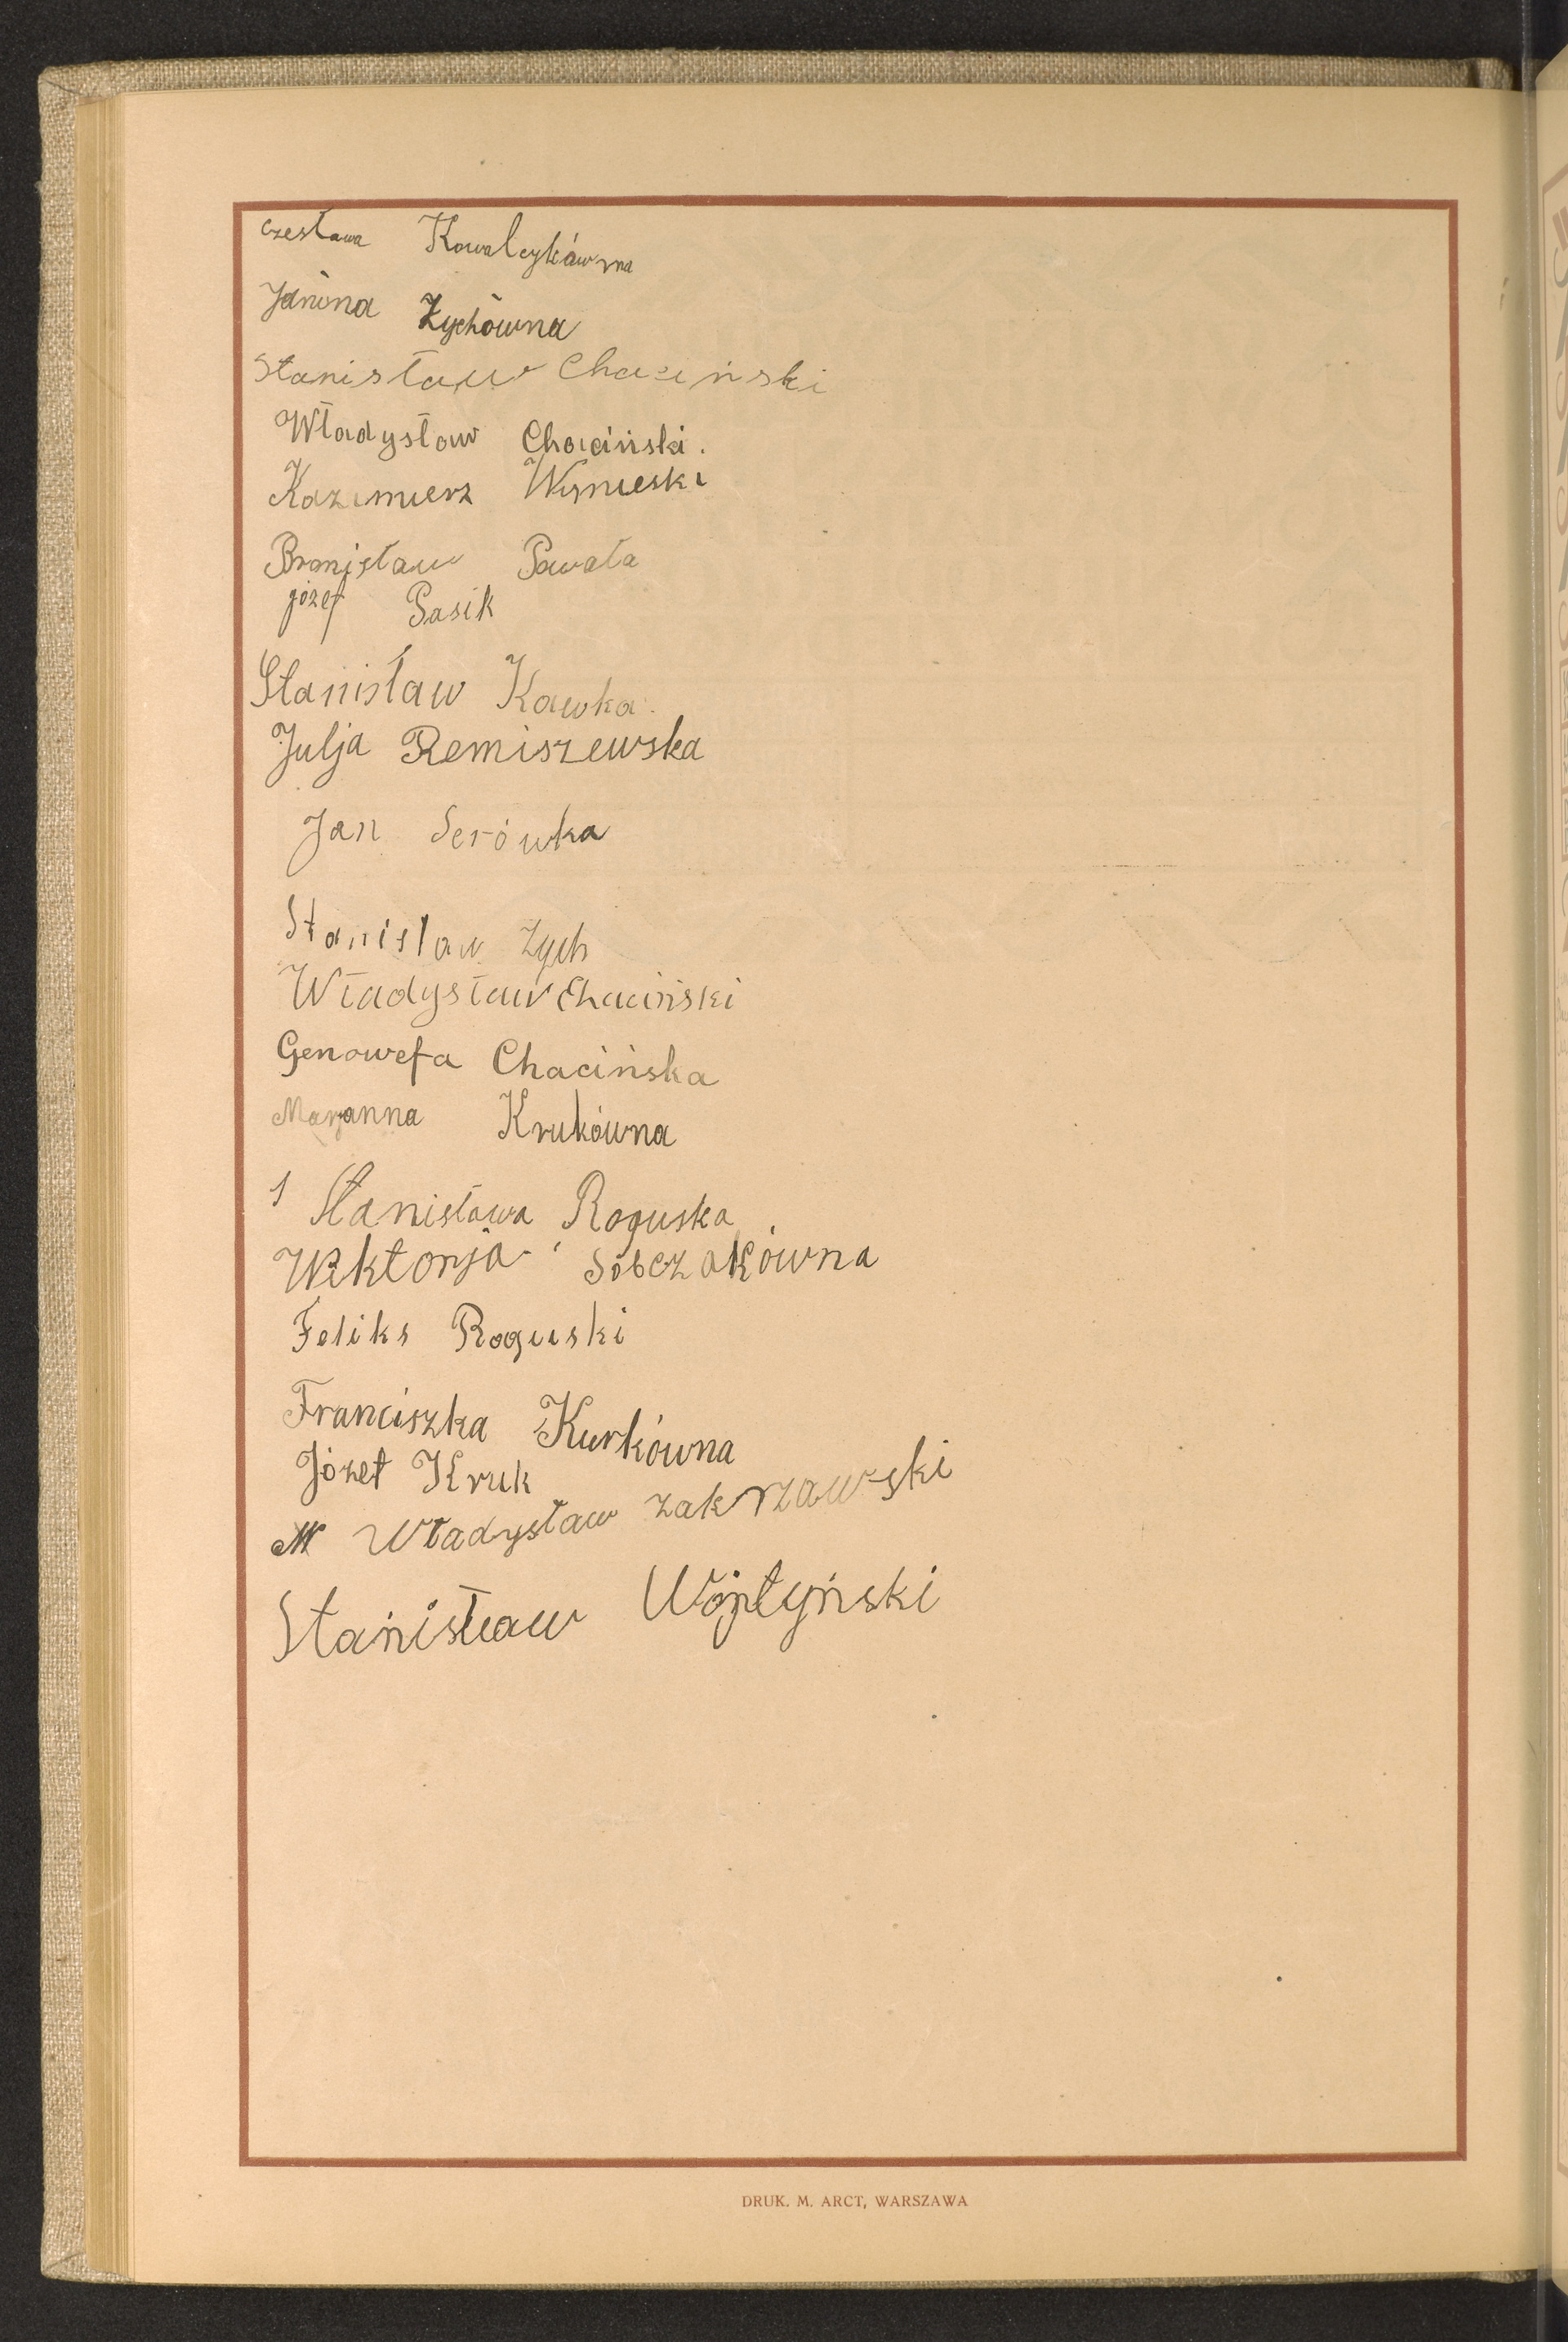 Czesława Kowalcykówna
Janina Zychówna
Stanisław Chaciński
Władysław Chaciński.
Kazimierz Wisnieski
Bronisław Pawała
józef Pasik
Stanisław Kawka.
Julja Remiszewska
Jan Serówka
Stanislaw Zych
Władysław Chaciński
Genowefa Chacińska
Maryanna Krukówna
Stanisława Roguska
Wiktorja Sobczakówna
Feliks Roguski
Franciszka Kurkówna
Józef Kruk
Władysław Zakrzawski
Stanisław Wójtyński
DRUK. M. ARCT, WARSZAWA